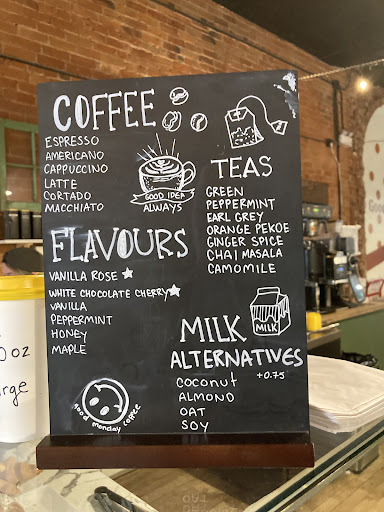 COFFEE
ESPRESSO
AMERICANO
CAPPUCCINO
LATTE
CORTADO
MACCHIATO
GOOD IDEA
ALWAYS
TEAS
GREEN
PEPPERMINT
EARL GREY
ORANGE PEKOE
GINGER SPICE
CHAI MASALA
CAMOMILE
FLAVOURS
VANILLA ROSE
WHITE CHOCOLATE CHERRY
VANILLA
PEPPERMINT
HONEY
MAPLE
MILK
MILK
ALTERNATIVES
+0.75
COCONUT
ALMOND
OAT
SOY
good monday coffee
0 oz
rge